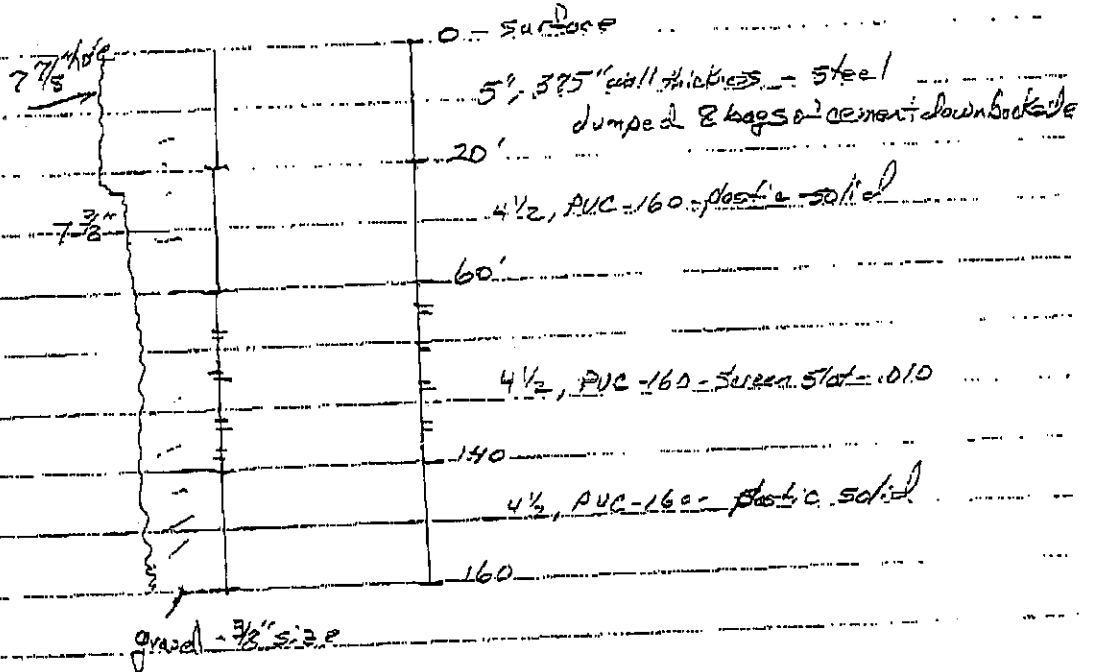 0 - surface
7 7/8" hole
5", .375" wall thickness - steel
dumped 8 bags of cement down backside
20'
4 1/2, PVC-160-plastic-solid
7 3/8"
60'
4 1/2, PVC-160-Screen Slot-.010
140
4 1/2, PVC-160- plastic solid
160
gravel - 3/8" size